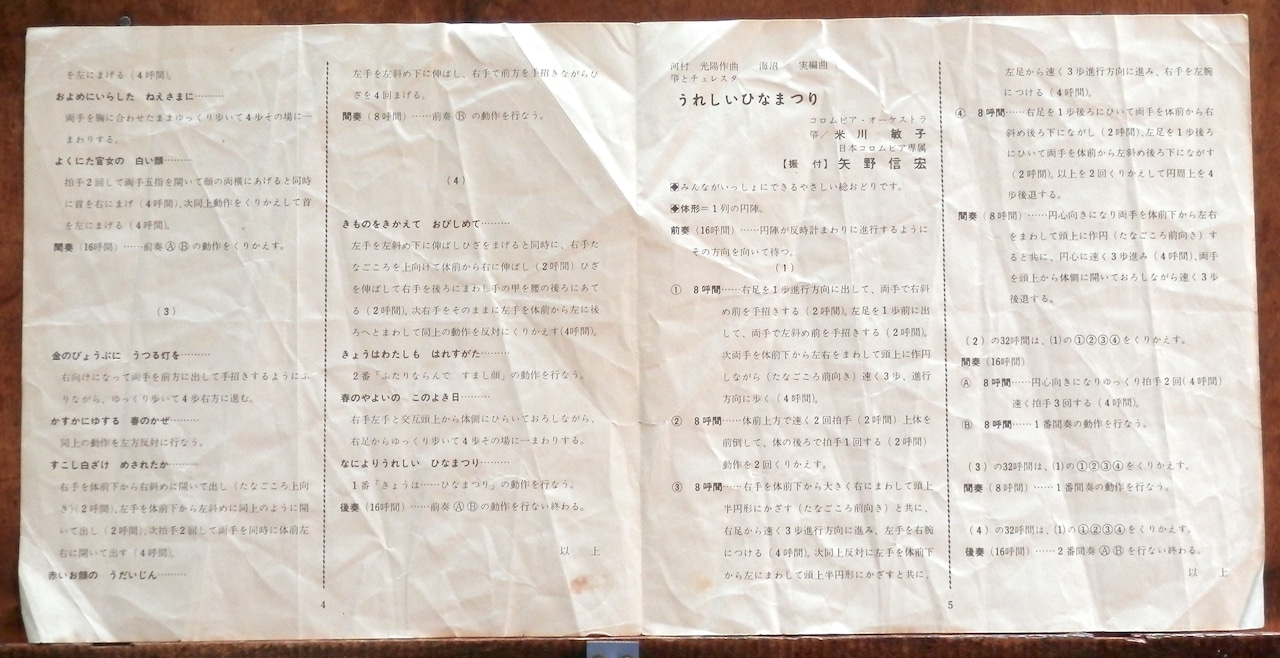 を左にまげる（4呼間）。
およめにいらした　ねえさまに………
両手を胸に合わせたままゆっくり歩いて4歩その場に一
まわりする。
よくにた官女の　白い顔………
拍手2回して両手五指を開いて顔の両横にあげると同時
に首を右にまげ（4呼間）、次同上動作をくりかえして首
を左にまげる（4呼間）。
間奏（16呼間）……前奏ⒶⒷの動作をくりかえす。
（3）
金のびょうぶに　うつる灯を………
右向けになって両手を前方に出して手招きするようにふ
りながら、ゆっくり歩いて4歩右方に進む。
かすかにゆする　春のかぜ………
同上の動作を左方反対に行なう。
すこし白ざけ　めされたか………
右手を体前下から右斜めに開いて出し（たなごころ上向
き）（2呼間）、左手を体前下から左斜めに同上のように開
いて出し（2呼間）、次拍手2回して両手を同時に体前左
右に開いて出す（4呼間）。
赤いお顔の　うだいじん………
4
左手を左斜め下に伸ばし、右手で前方を手招きながらひ
ざを4回まげる。
間奏（8呼間）……前奏Ⓑの動作を行なう。
（4）
きものをきかえて　おびしめて………
左手を左斜め下に伸ばしひざをまげると同時に、右手た
なごころを上向けて体前から右に伸ばし（2呼間）ひざ
を伸ばして右手を後ろにまわし手の甲を腰の後ろにあて
る（2呼間）。次右手をそのままに左手を体前から左に後
ろへとまわして同上の動作を反対にくりかえす（4呼間）。
きょうはわたしも　はれすがた………
2番「ふたりならんで　すまし顔」の動作を行なう。
春のやよいの　このよき日………
右手左手と交互頭上から体側にひらいておろしながら、
右足からゆっくり歩いて4歩その場に一まわりする。
なによりうれしい　ひなまつり………
1番「きょうは……ひなまつり」の動作を行なう。
後奏（16呼間）……前奏ⒶⒷの動作を行ない終わる。
以　上
河村　光陽作曲　　海沼　　実編曲
箏とチェレスタ
うれしいひなまつり
コロムビア・オーケストラ
箏／米川　敏子
日本コロムビア専属
【振　付】矢野信宏
◆みんながいっしょにできるやさしい絵おどりです。
◆体形＝1列の円陣。
前奏（16呼間）……円陣が反時計まわりに進行するように
その方向を向いて待つ。
（1）
①　8呼間……右足を1歩進行方向に出して、両手で右斜
め前を手招きする（2呼間）。左足を1歩前に出
して、両手で左斜め前を手招きする（2呼間）。
次両手を体前下から左右をまわして頭上に作円
しながら（たなごころ前向き）速く3歩、進行
方向に歩く（4呼間）。
②　8呼間……体前上方で速く2回拍手（2呼間）上体を
前倒して、体の後ろで拍手1回する（2呼間）
動作を2回くりかえす。
③　8呼間……右手を体前下から大きく右にまわして頭上
半円形にかざす（たなごころ前向き）と共に、
右足から速く3歩進行方向に進み、左手を右腕
につける（4呼間）。次同上反対に左手を体前下
から左にまわして頭上半円形にかざすと共に、
5
左足から速く3歩進行方向に進み、右手を左腕
につける（4呼間）。
④　8呼間……右足を1歩後ろにひいて両手を体前から右
斜め後ろ下にながし（2呼間）、左足を1歩後ろ
にひいて両手を体前から左斜め後ろ下にながす
（2呼間）。以上を2回くりかえして円周上を4
歩後退する。
間奏（8呼間）……円心向きになり両手を体前下から左右
をまわして頭上に作円（たなごころ前向き）す
ると共に、円心に速く3歩進み（4呼間）、両手
を頭上から体側に開いておろしながら速く3歩
後退する。
（2）の32呼間は、(1)の①②③④をくりかえす。
間奏（16呼間）
Ⓐ　8呼間……円心向きになりゆっくり拍手2回（4呼間）
速く拍手3回する（4呼間）。
Ⓑ　8呼間……1番間奏の動作を行なう。
（3）の32呼間は、(1)の①②③④をくりかえす。
間奏（8呼間）……1番間奏の動作を行なう。
（4）の32呼間は、(1)の①②③④をくりかえす。
後奏（16呼間）……2番間奏ⒶⒷを行ない終わる。
以　上